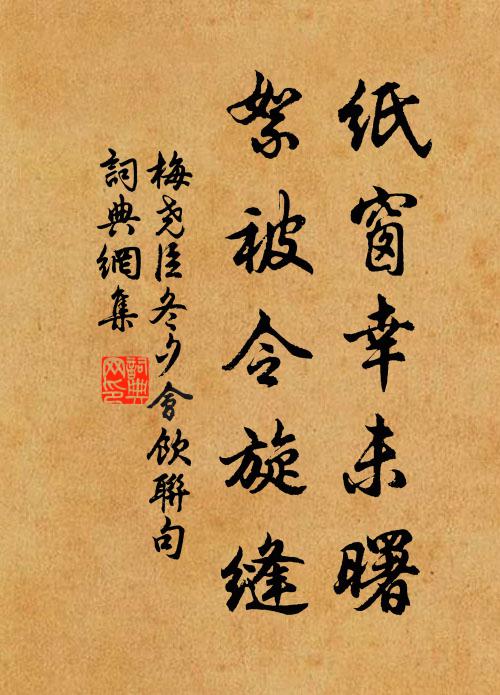 紙窗幸未曙
絮被令旋縫
梅堯臣冬夕會飲聯句
詞典網集
詞典网印